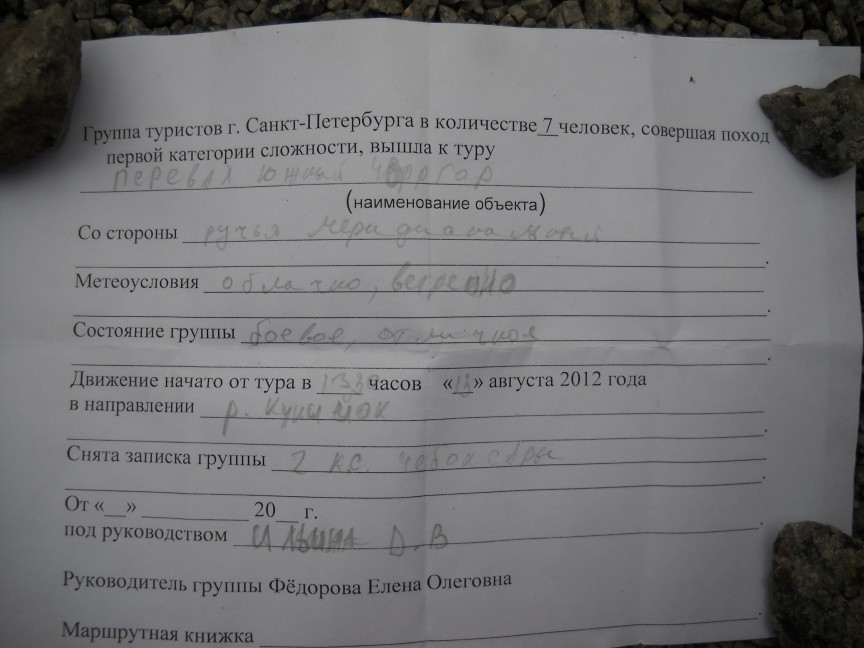 Группа туристов г. Санкт-Петербурга в количестве 7 человек, совершая поход
первой категории сложности, вышла к туру
перевал южный Чоргор
(наименование объекта)
Со стороны ручья Меридиональный
Метеоусловия облачно, ветрено
Состояние группы боевое, отличное
Движение начато от тура в часов «13» августа 2012 года
в направлении р.
Снята записка группы Чебоксары
От «__» __________ 20__ г.
под руководством Ильина Д.В
Руководитель группы Фёдорова Елена Олеговна
Маршрутная книжка